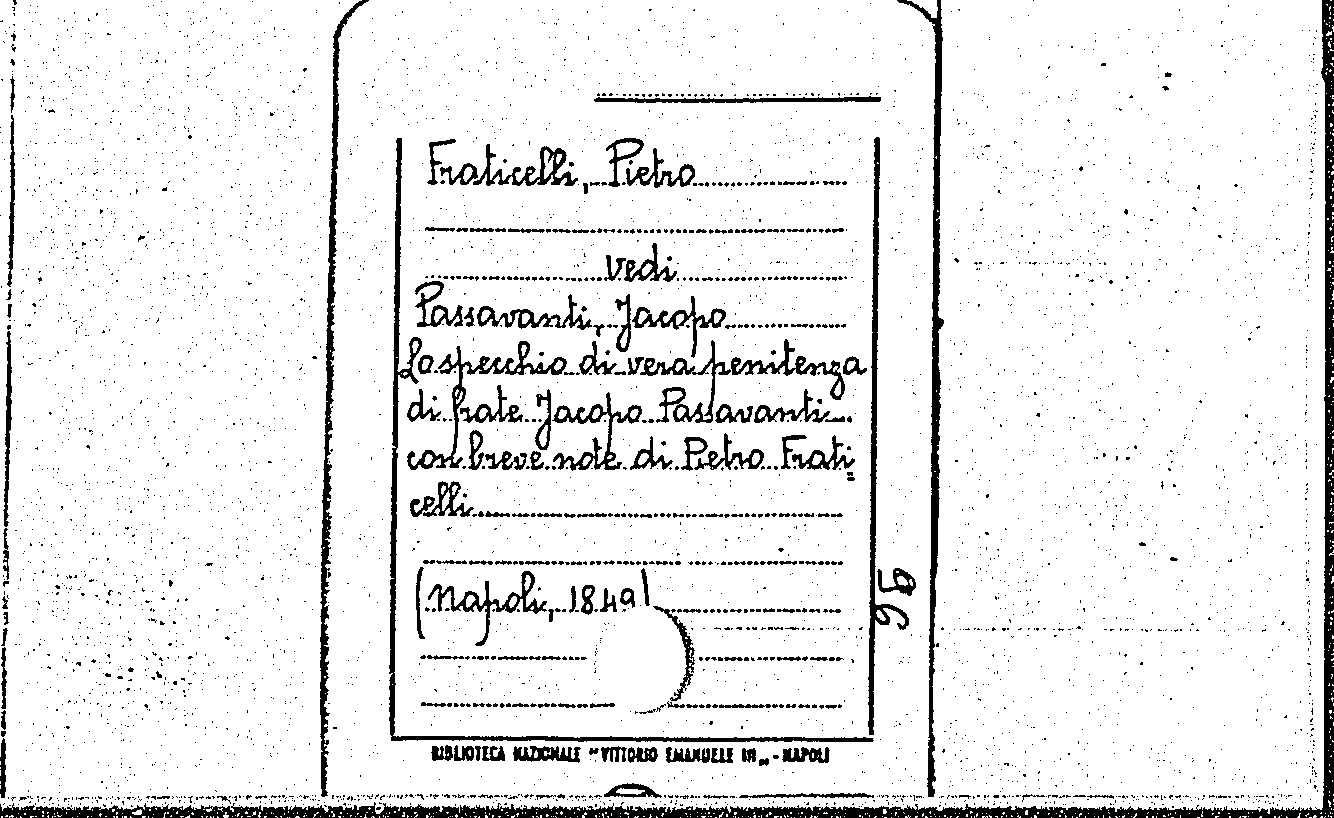 Fraticelli, Pietro
vedi
Passavanti, Jacopo
Lo specchio di vera penitenza
di frate Jacopo Passavanti...
con breve note di Pietro Frati=
celli...
(Napoli, 1849)
96
BIBLIOTECA NAZIONALE "VITTORIO EMANUELE III„ - NAPOLI